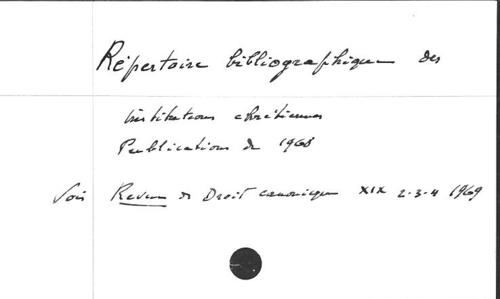 Répertoire bibliographique des
institutions chrétiennes
Publications de 1968
Voir Revue de Droit canonique XIX 2-3-4 1969